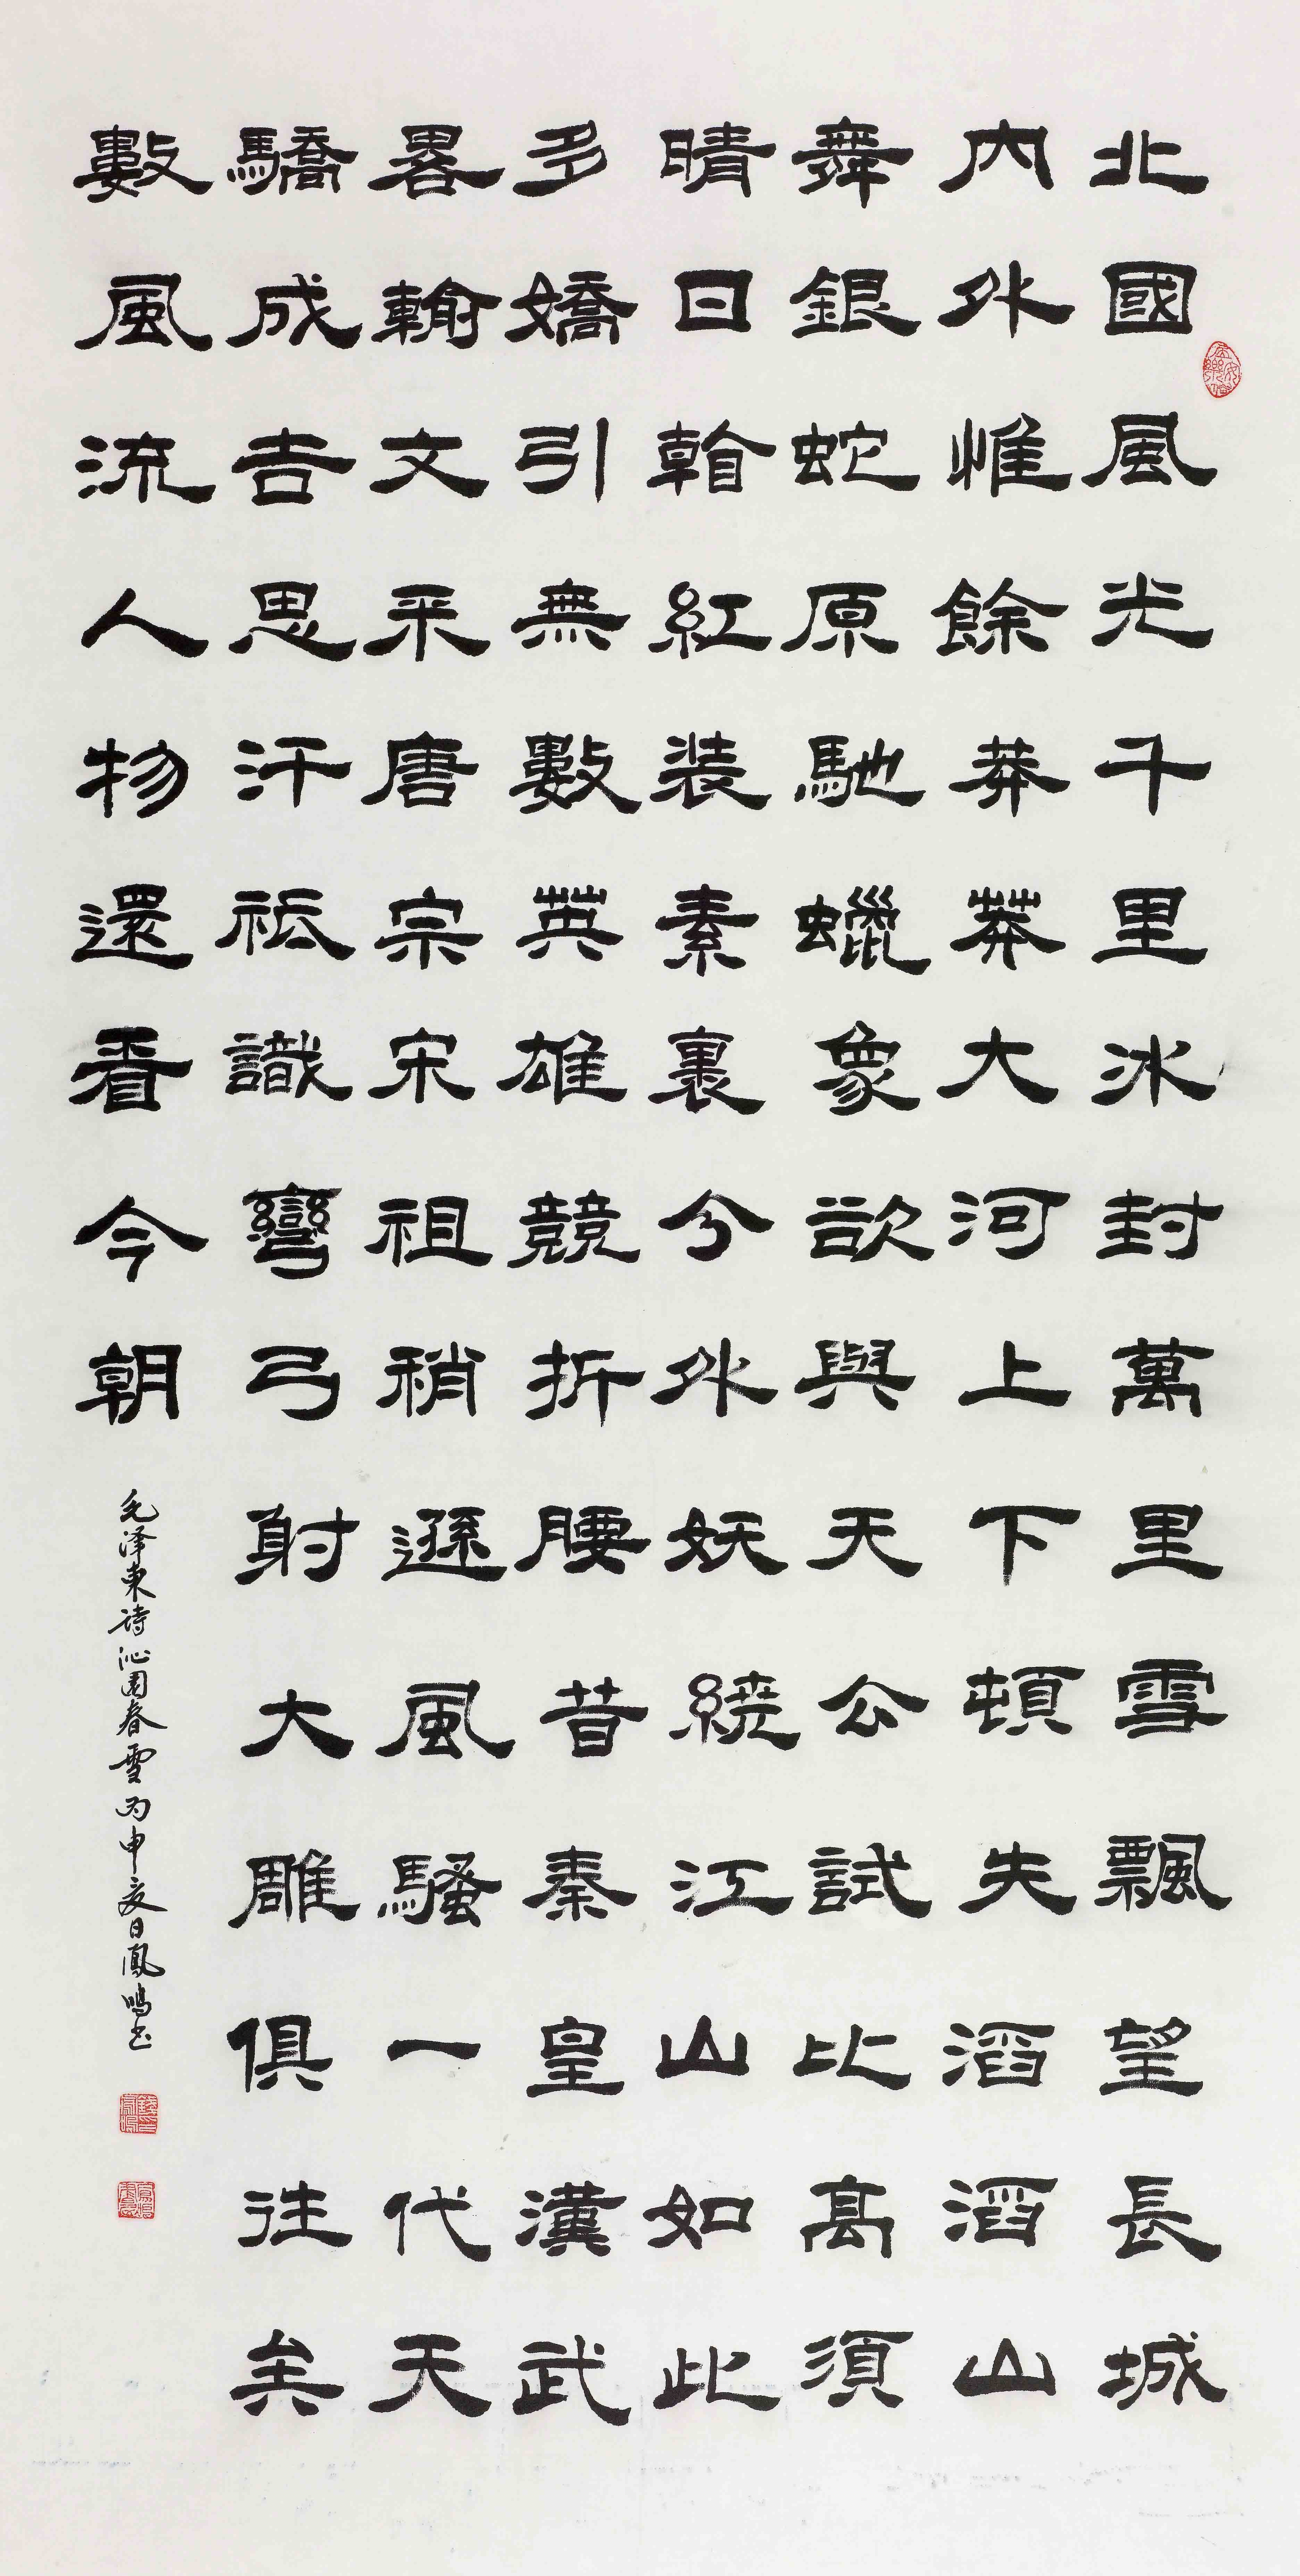 北國風光千里冰封萬里雪飄望長城
內外惟餘莽莽大河上下頓失滔滔山
舞銀蛇原馳蠟象欲與天公試比高須
晴日看紅装素裹分外妖繞江山如此
多嬌引無數英雄競折腰昔秦皇漢武
畧輸文采唐宗宋祖稍遜風騷一代天
驕成吉思汗祗識彎弓射大雕俱往矣
數風流人物還看今朝
毛泽東诗沁园春雪丙申夏日鳳鳴书